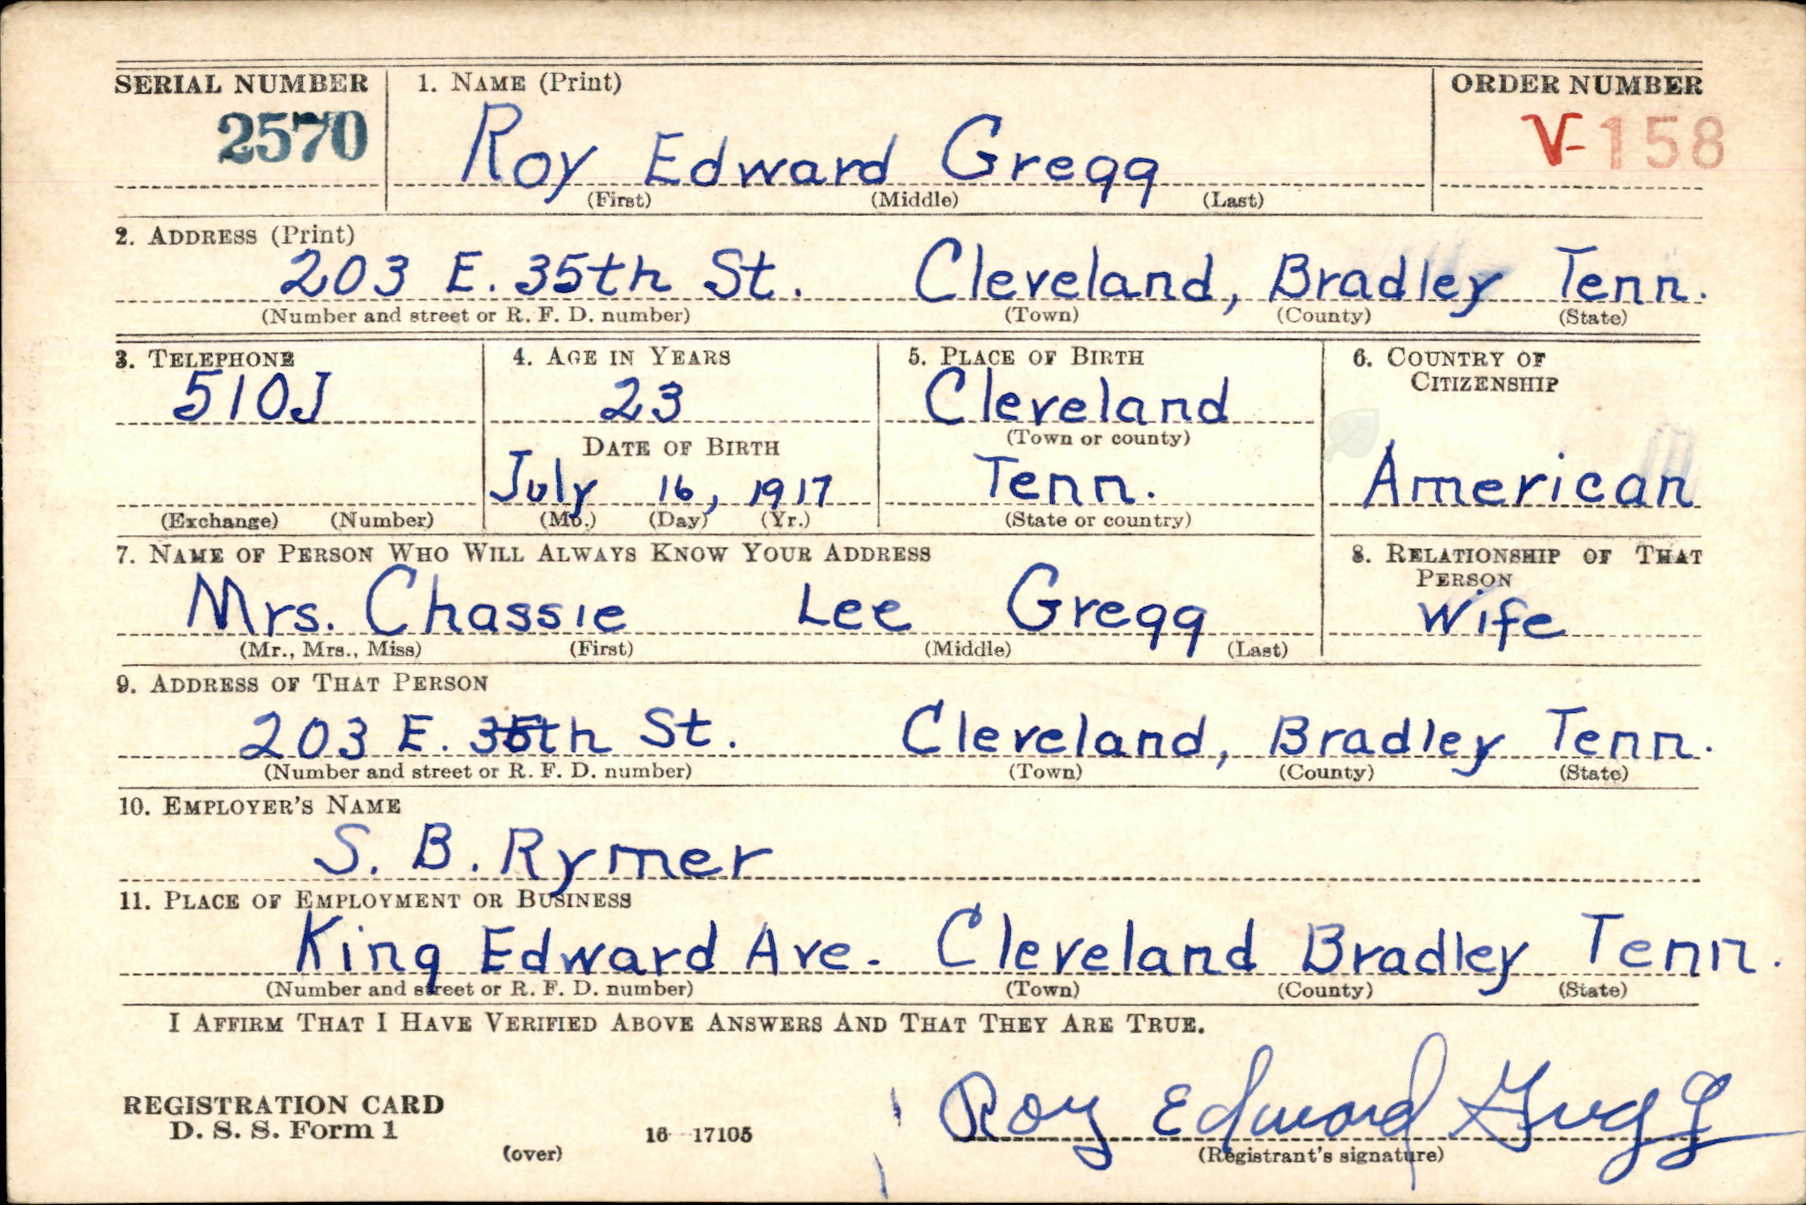 SERIAL NUMBER 1. NAME (Print) ORDER NUMBER
2570 Roy Edward Gregg V-158
(First) (Middle) (Last)
2. ADDRESS (Print)
203 E. 35th St. Cleveland, Bradley Tenn.
(Number and street or R. F. D. number) (Town) (County) (State)
3. TELEPHONE 4. AGE IN YEARS 5. PLACE OF BIRTH 6. COUNTRY OF
CITIZENSHIP
510J 23 Cleveland
DATE OF BIRTH (Town or county)
July 16, 1917 Tenn. American
(Exchange) (Number) (Mo.) (Day) (Yr.) (State or country)
7. NAME OF PERSON WHO WILL ALWAYS KNOW YOUR ADDRESS 8. RELATIONSHIP OF THAT
PERSON
Mrs. Chassie Lee Gregg Wife
(Mr., Mrs., Miss) (First) (Middle) (Last)
9. ADDRESS OF THAT PERSON
203 E. 35th St. Cleveland, Bradley Tenn.
(Number and street or R. F. D. number) (Town) (County) (State)
10. EMPLOYER'S NAME
S. B. Rymer
11. PLACE OF EMPLOYMENT OR BUSINESS
King Edward Ave. Cleveland Bradley Tenn.
(Number and street or R. F. D. number) (Town) (County) (State)
I AFFIRM THAT I HAVE VERIFIED ABOVE ANSWERS AND THAT THEY ARE TRUE.
REGISTRATION CARD
D. S. S. Form 1 16-17105 Roy Edward Gregg
(over) (Registrant's signature)